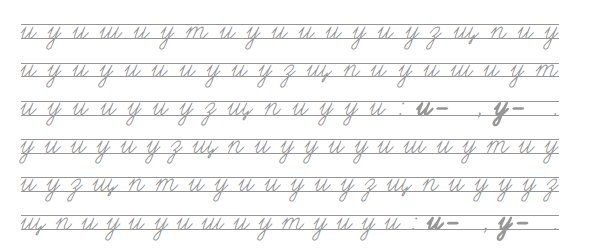 и у и ш и у т и у и и и у и у з щ п и у
и у и у и и и у и у з щ п и у и ш и у т
и у и и у и у з щ п и у у и : и– , у– .
у и и у и у з щ п и у у и у и ш и у т и у
и у з щ п т и у и и у и у з щ п и у у у з
щ п и у и у и ш и у т у и у и : и– , у– .